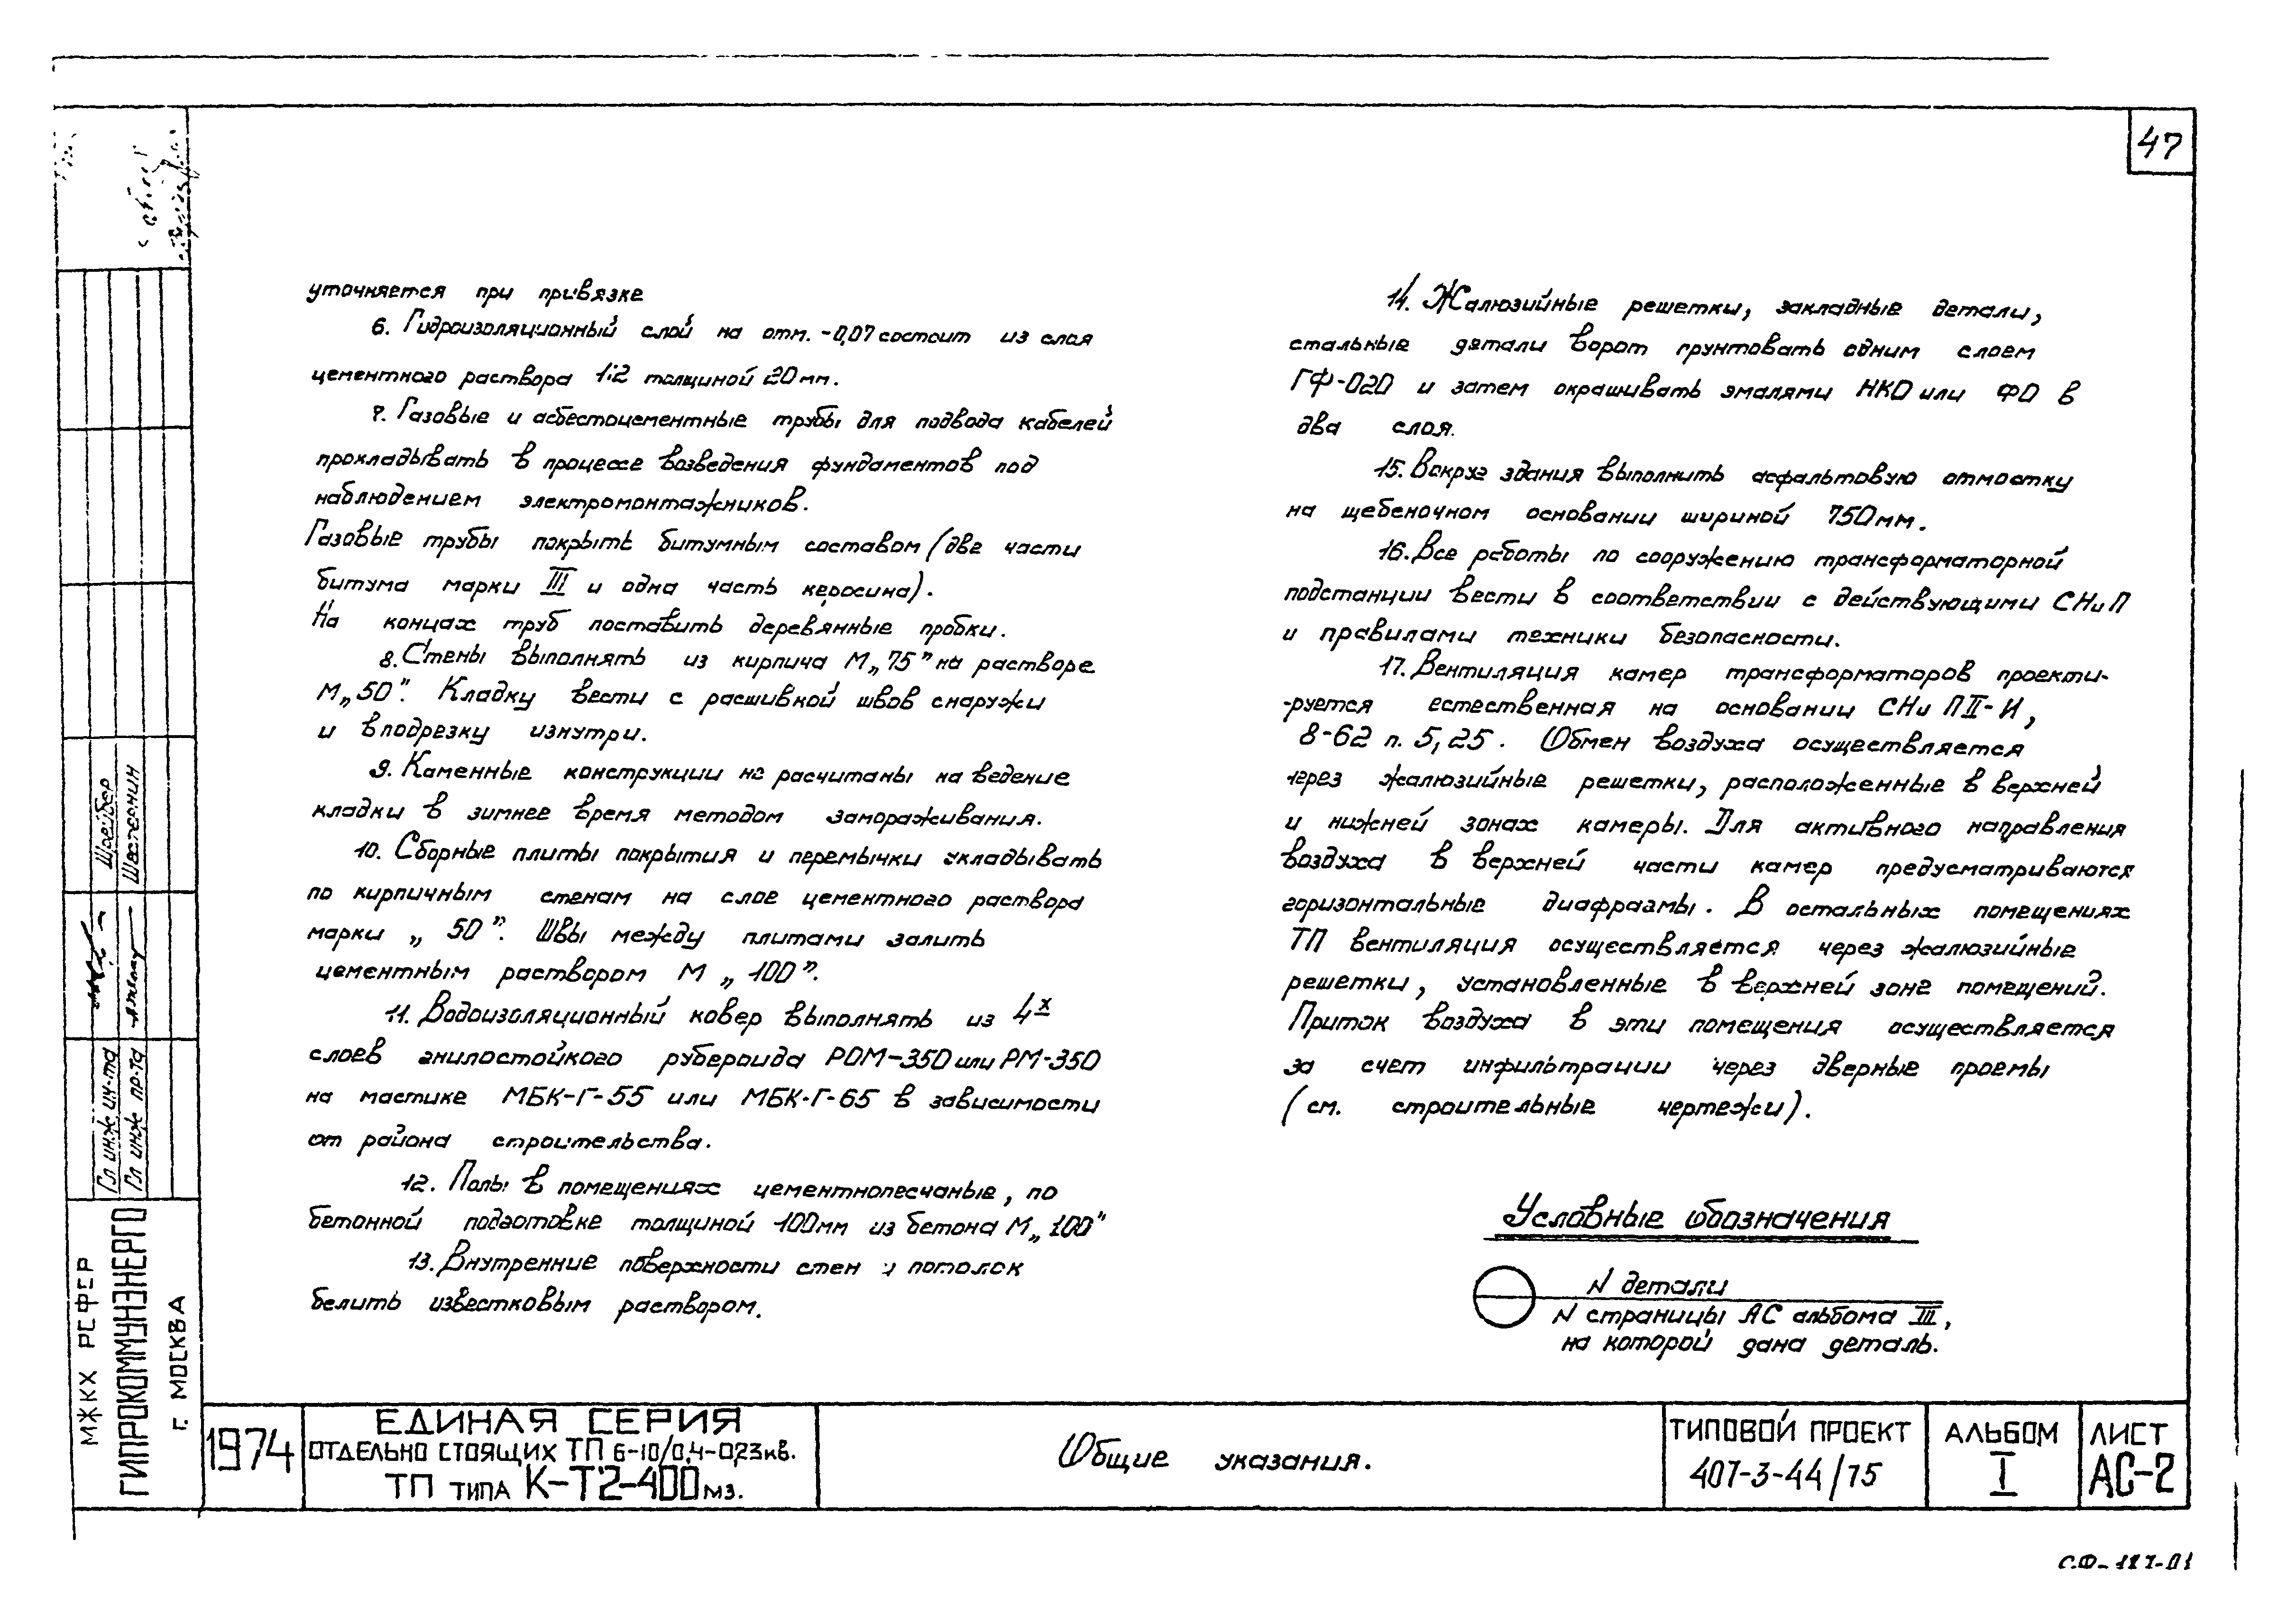 47
уточняется при привязке
6. Гидроизоляционный слой на отм. -0,07 состоит из слоя
цементного раствора 1:2 толщиной 20 мм.
7. Газовые и асбестоцементные трубы для подвода кабелей
прокладывать в процессе возведения фундаментов под
наблюдением электромонтажников.
Газовые трубы покрыть битумным составом (две части
битума марки III и одна часть керосина).
На концах труб поставить деревянные пробки.
8. Стены выполнять из кирпича М„75" на растворе
М„50". Кладку вести с расшивкой швов снаружи
и вподрезку изнутри.
9. Каменные конструкции не расчитаны на ведение
кладки в зимнее время методом замораживания.
10. Сборные плиты покрытия и перемычки укладывать
по кирпичным стенам на слое цементного раствора
марки „50". Швы между плитами залить
цементным раствором М „100".
11. Водоизоляционный ковер выполнять из 4х
слоев гнилостойкого рубероида РОМ-350 или РМ-350
на мастике МБК-Г-55 или МБК-Г-65 в зависимости
от района строительства.
12. Полы в помещениях цементнопесчаные, по
бетонной подготовке толщиной 100мм из бетона М„100"
13. Внутренние поверхности стен и потолок
белить известковым раствором.
14. Жалюзийные решетки, закладные детали,
стальные детали ворот грунтовать одним слоем
ГФ-020 и затем окрашивать эмалями НКО или ФО в
два слоя.
15. Вокруг здания выполнить асфальтовую отмостку
на щебеночном основании шириной 750мм.
16. Все работы по сооружению трансформаторной
подстанции вести в соответствии с действующими СНиП
и правилами техники безопасности.
17. Вентиляция камер трансформаторов проекти-
-руется естественная на основании СНиП II-И,
8-62 п. 5,25. Обмен воздуха осуществляется
через жалюзийные решетки, расположенные в верхней
и нижней зонах камеры. Для активного направления
воздуха в верхней части камер предусматриваются
горизонтальные диафрагмы. В остальных помещениях
ТП вентиляция осуществляется через жалюзийные
решетки, установленные в верхней зоне помещений.
Приток воздуха в эти помещения осуществляется
за счет инфильтрации через дверные проемы
(см. строительные чертежи).
Условные обозначения
N детали
N страницы АС альбома III,
на которой дана деталь.
Шрейбер
Шестернин
Гл инж ин-та
Гл инж пр-та
МЖКХ РСФСР
ГИПРОКОММУНЭНЕРГО
Г. МОСКВА
1974
ЕДИНАЯ СЕРИЯ
ОТДЕЛЬНО СТОЯЩИХ ТП 6-10/0,4-0,23кв.
ТП типа К-Т2-400мз.
Общие указания.
ТИПОВОЙ ПРОЕКТ
407-3-44/75
АЛЬБОМ
I
ЛИСТ
АС-2